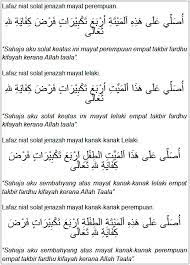 Lafaz niat solat jenazah mayat perempuan.
أُصَلِّي عَلَى هَذِهِ الْمَيِّتَةِ أَرْبَعَ تَكْبِيرَاتٍ فَرْضَ كِفَايَةٍ لِلَّهِ
تَعَالَى
"Sahaja aku solat keatas ini mayat perempuan empat takbir fardhu
kifayah kerana Allah taala".
Lafaz niat solat jenazah mayat lelaki.
أُصَلِّي عَلَى هَذَا الْمَيِّتِ أَرْبَعَ تَكْبِيرَاتٍ فَرْضَ كِفَايَةٍ لِلَّهِ
تَعَالَى
"Sahaja aku solat keatas ini mayat lelaki empat takbir fardhu
kifayah kerana Allah taala".
Lafaz niat solat jenazah mayat kanak-kanak Lelaki.
أُصَلِّي عَلَى هَذَا الْمَيِّتِ الطِّفْلِ أَرْبَعَ تَكْبِيرَاتٍ فَرْضَ
كِفَايَةٍ لِلَّهِ تَعَالَى
"Sahaja aku sembahyang atas mayat kanak-kanak lelaki empat
takbir fardhu kifayah kerana Allah Taala".
Lafaz niat solat jenazah mayat kanak-kanak perempuan.
"Sahaja aku sembahyang atas mayat kanak-kanak perempuan
empat takbir fardhu kifayah kerana Allah Taala".